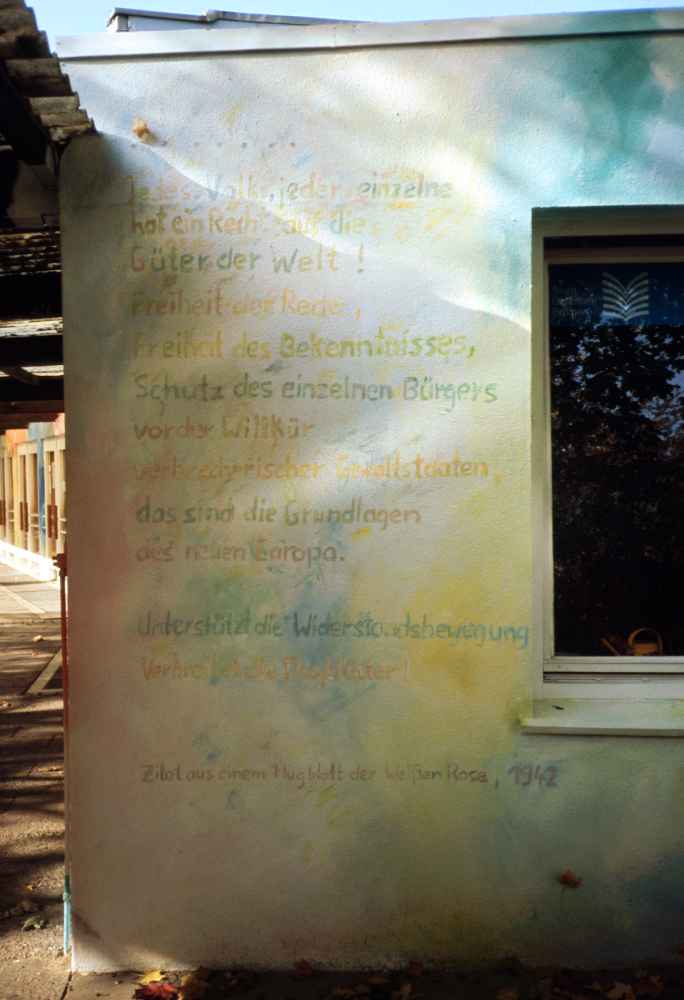 . . . . . . .
Jedes Volk, jeder einzelne
hat ein Recht auf die
Güter der Welt !
Freiheit der Rede,
Freiheit des Bekenntnisses,
Schutz des einzelnen Bürgers
vor der Willkür
verbrecherischer Gewaltstaaten,
das sind die Grundlagen
des neuen Europa.
Unterstützt die Widerstandsbewegung
Verbreitet die Flugblätter!
Zitat aus einem Flugblatt der Weißen Rose, 1942